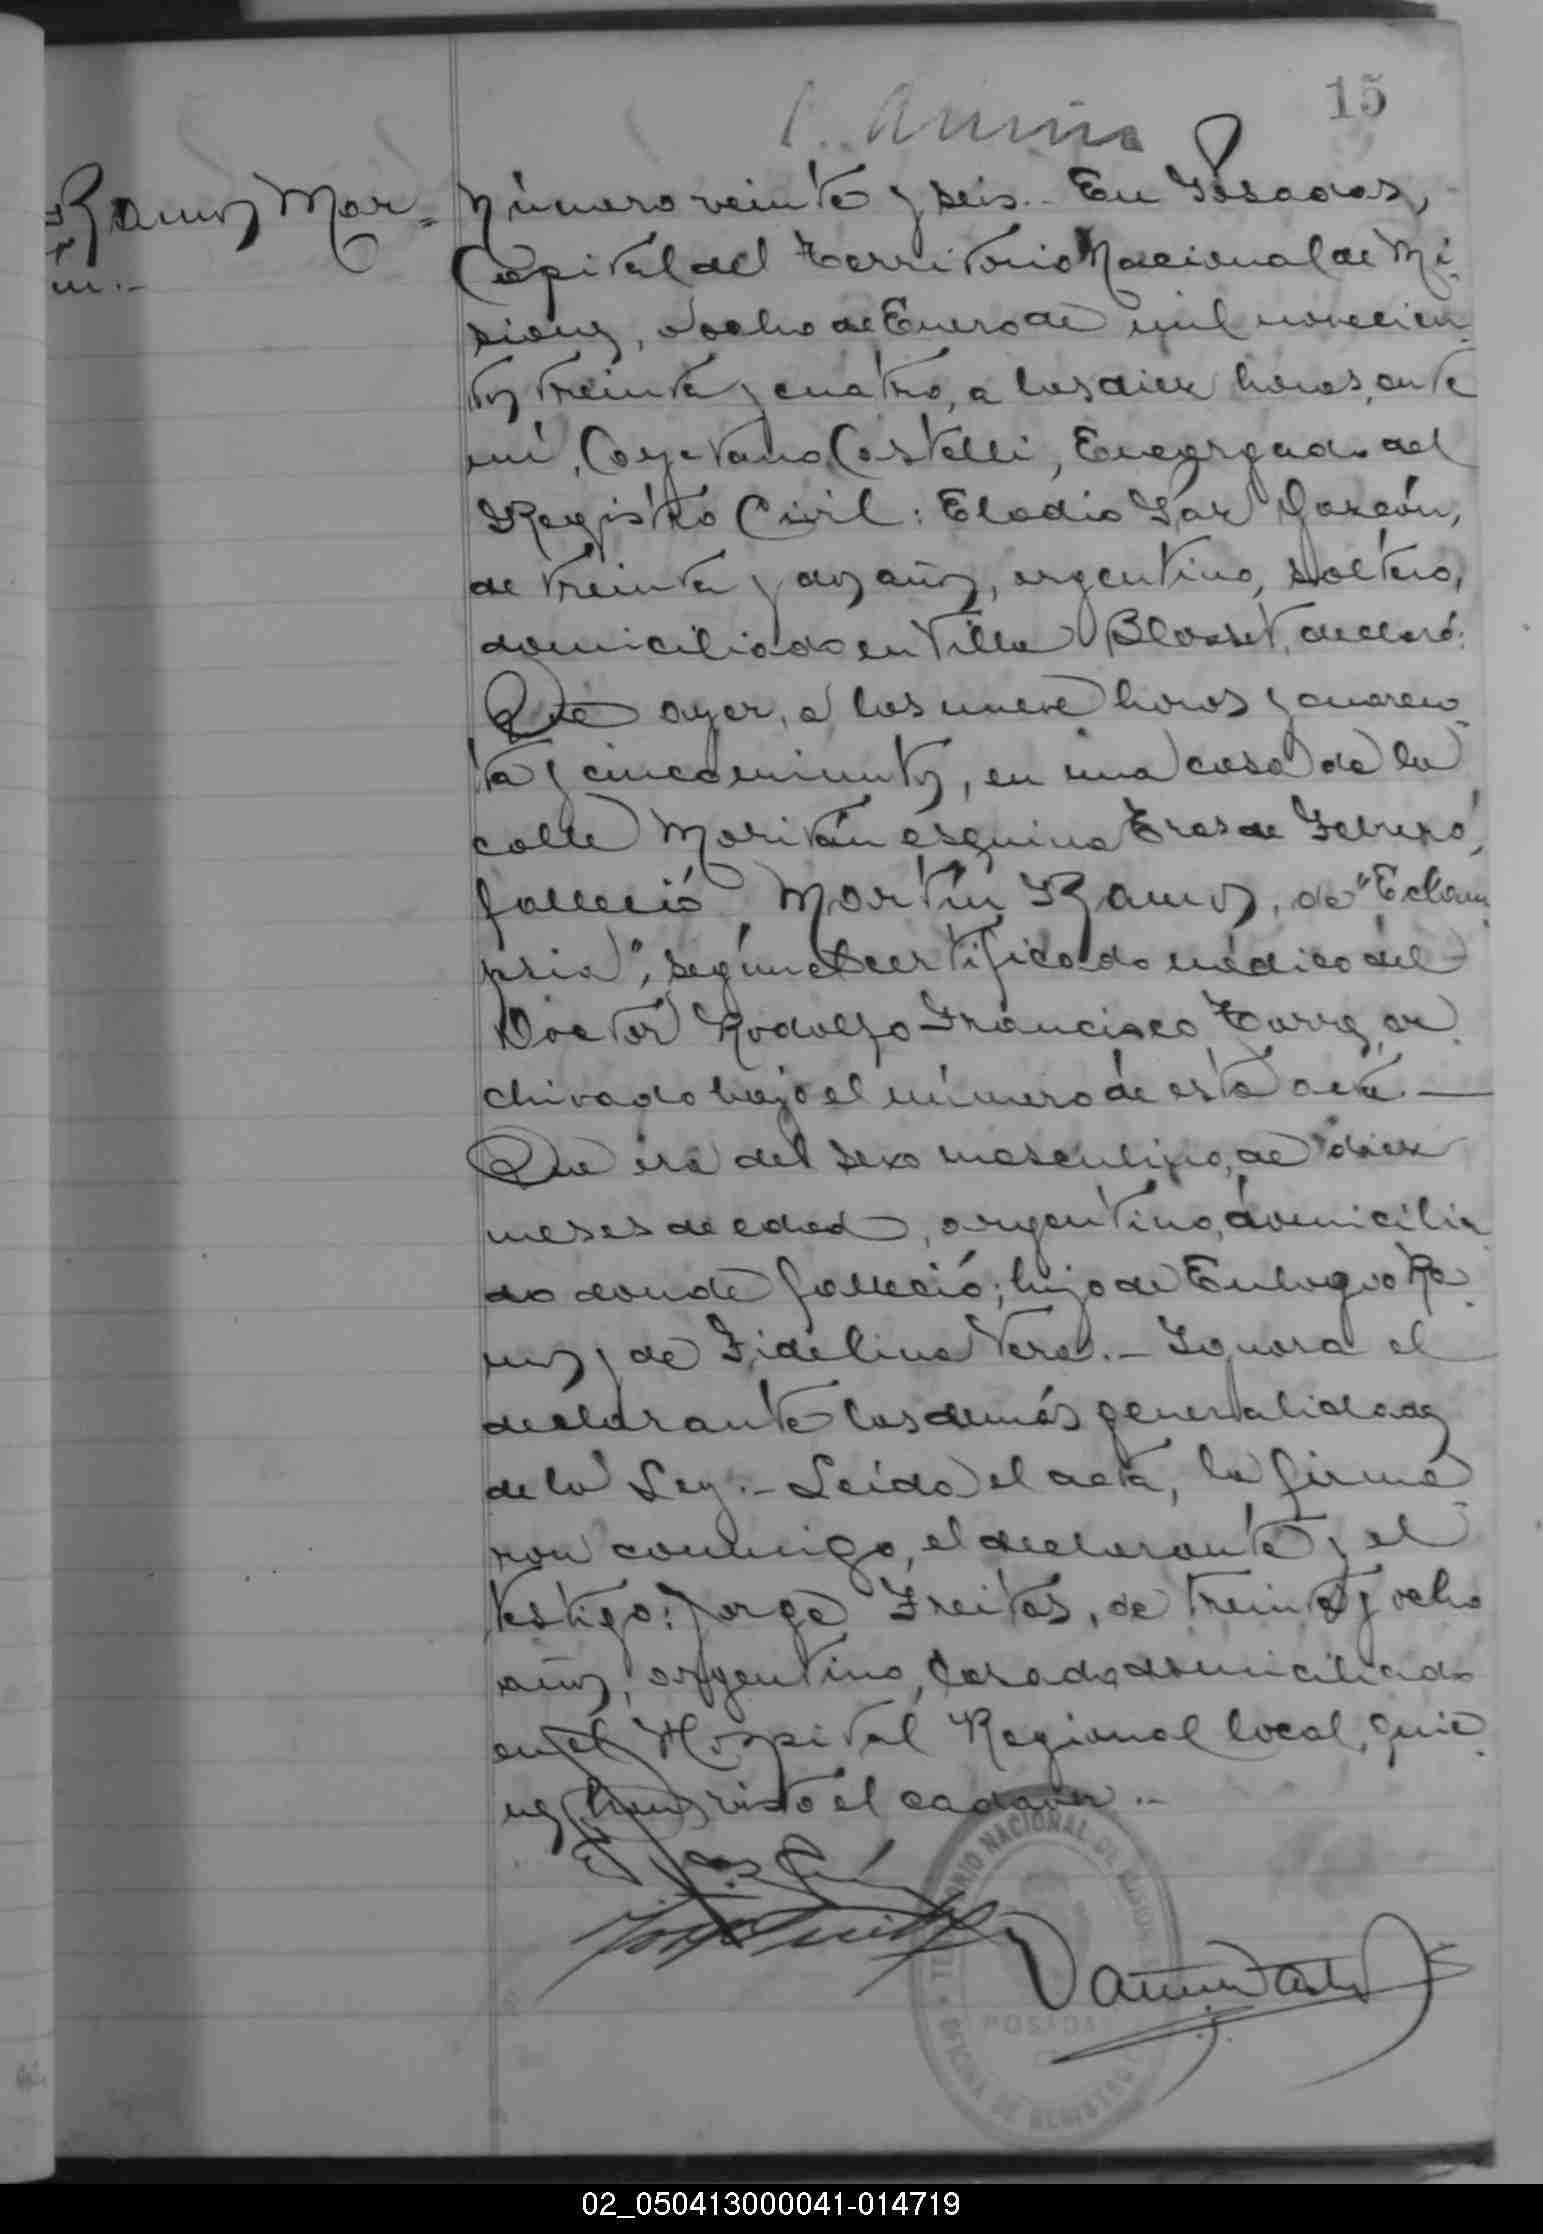 15
Ramos Mar=
tín.-
Número veinte y seis.- En Posadas,
Capital del Territorio Nacional de Mi-
siones, a ocho de Enero de mil novecien-
tos treinta y cuatro, a las diez horas, ante
mí, Cayetano Castelli, Encargado del
Registro Civil: Eladio Garzón,
de treinta y dos años, argentino, soltero,
domiciliado en Villa Blosset, declaró:
Que ayer, a las nueve horas y cuaren-
ta y cinco minutos, en una casa de la
calle esquina Tres de Febrero,
falleció Martín Ramos, de "Eclam
psia", según certificado médico del
Doctor Rodolfo Francisco Torres, ar-
chivado bajo el número de esta acta.—
Que era del sexo masculino, de diez
meses de edad, argentino, domicilia
do donde falleció; hijo de Eulogio Ra-
mos y de Fidelina Vera.- Ignora el
declarante las demás generalidades
de la Ley.- Leída el acta, la firma-
ron conmigo, el declarante y el
testigo: Jorge Freitas, de treinta y ocho
años, argentino, casado, domiciliado
en el Hospital Regional local, quie-
nes han visto el cadáver.-
TERRITORIO NACIONAL DE MISIONES
POSADAS
OFICINA DE REGISTRO
02_050413000041-014719